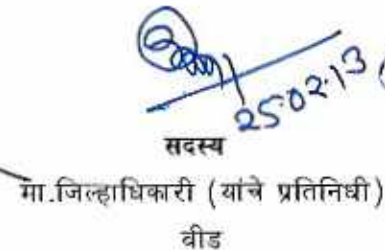 25.02.13
सदस्य
मा.जिल्हाधिकारी (यांचे प्रतिनिधी)
वीड